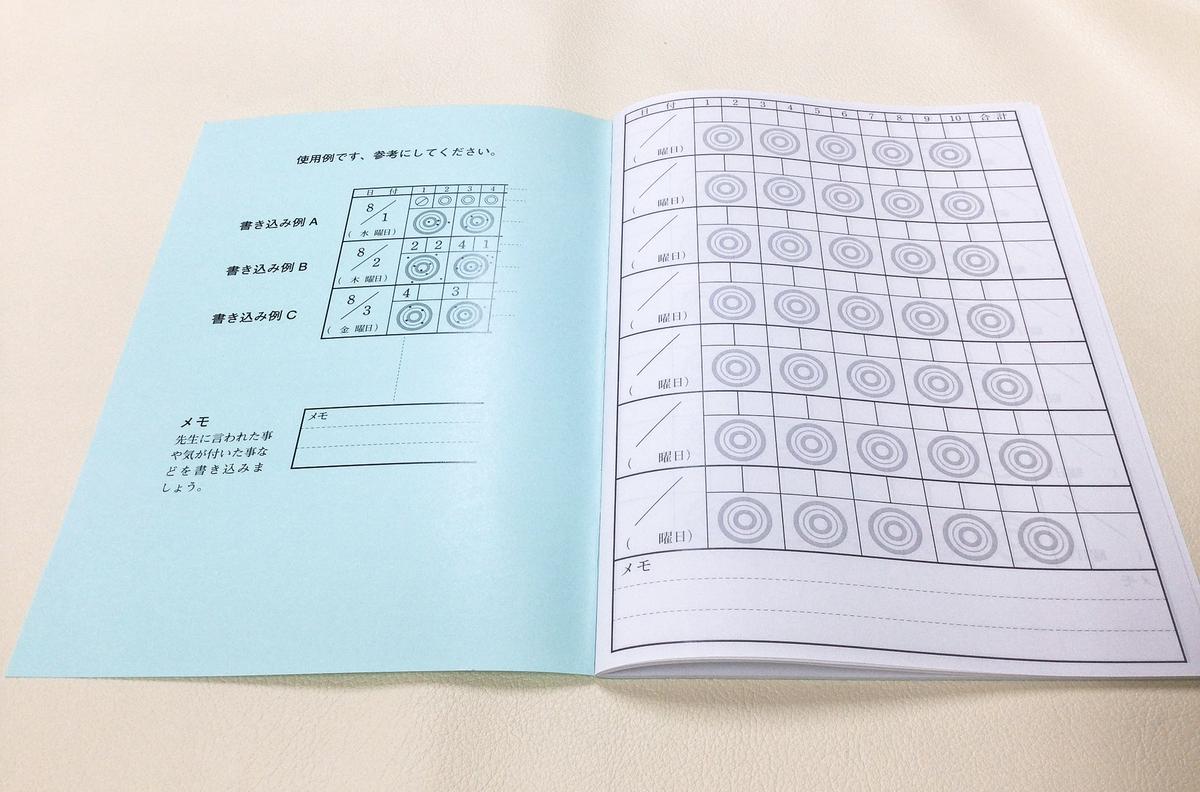 使用例です、参考にしてください。
日 付 1 2 3 4
書き込み例 A
8/1
( 水 曜日)
2 2 4 1
書き込み例 B
8/2
( 木 曜日)
4 3
書き込み例 C
8/3
( 金 曜日)
メモ
メモ
先生に言われた事
や気が付いた事な
どを書き込みま
しょう。
日 付 1 2 3 4 5 6 7 8 9 10 合 計
( 曜日)
( 曜日)
( 曜日)
( 曜日)
( 曜日)
( 曜日)
( 曜日)
メモ